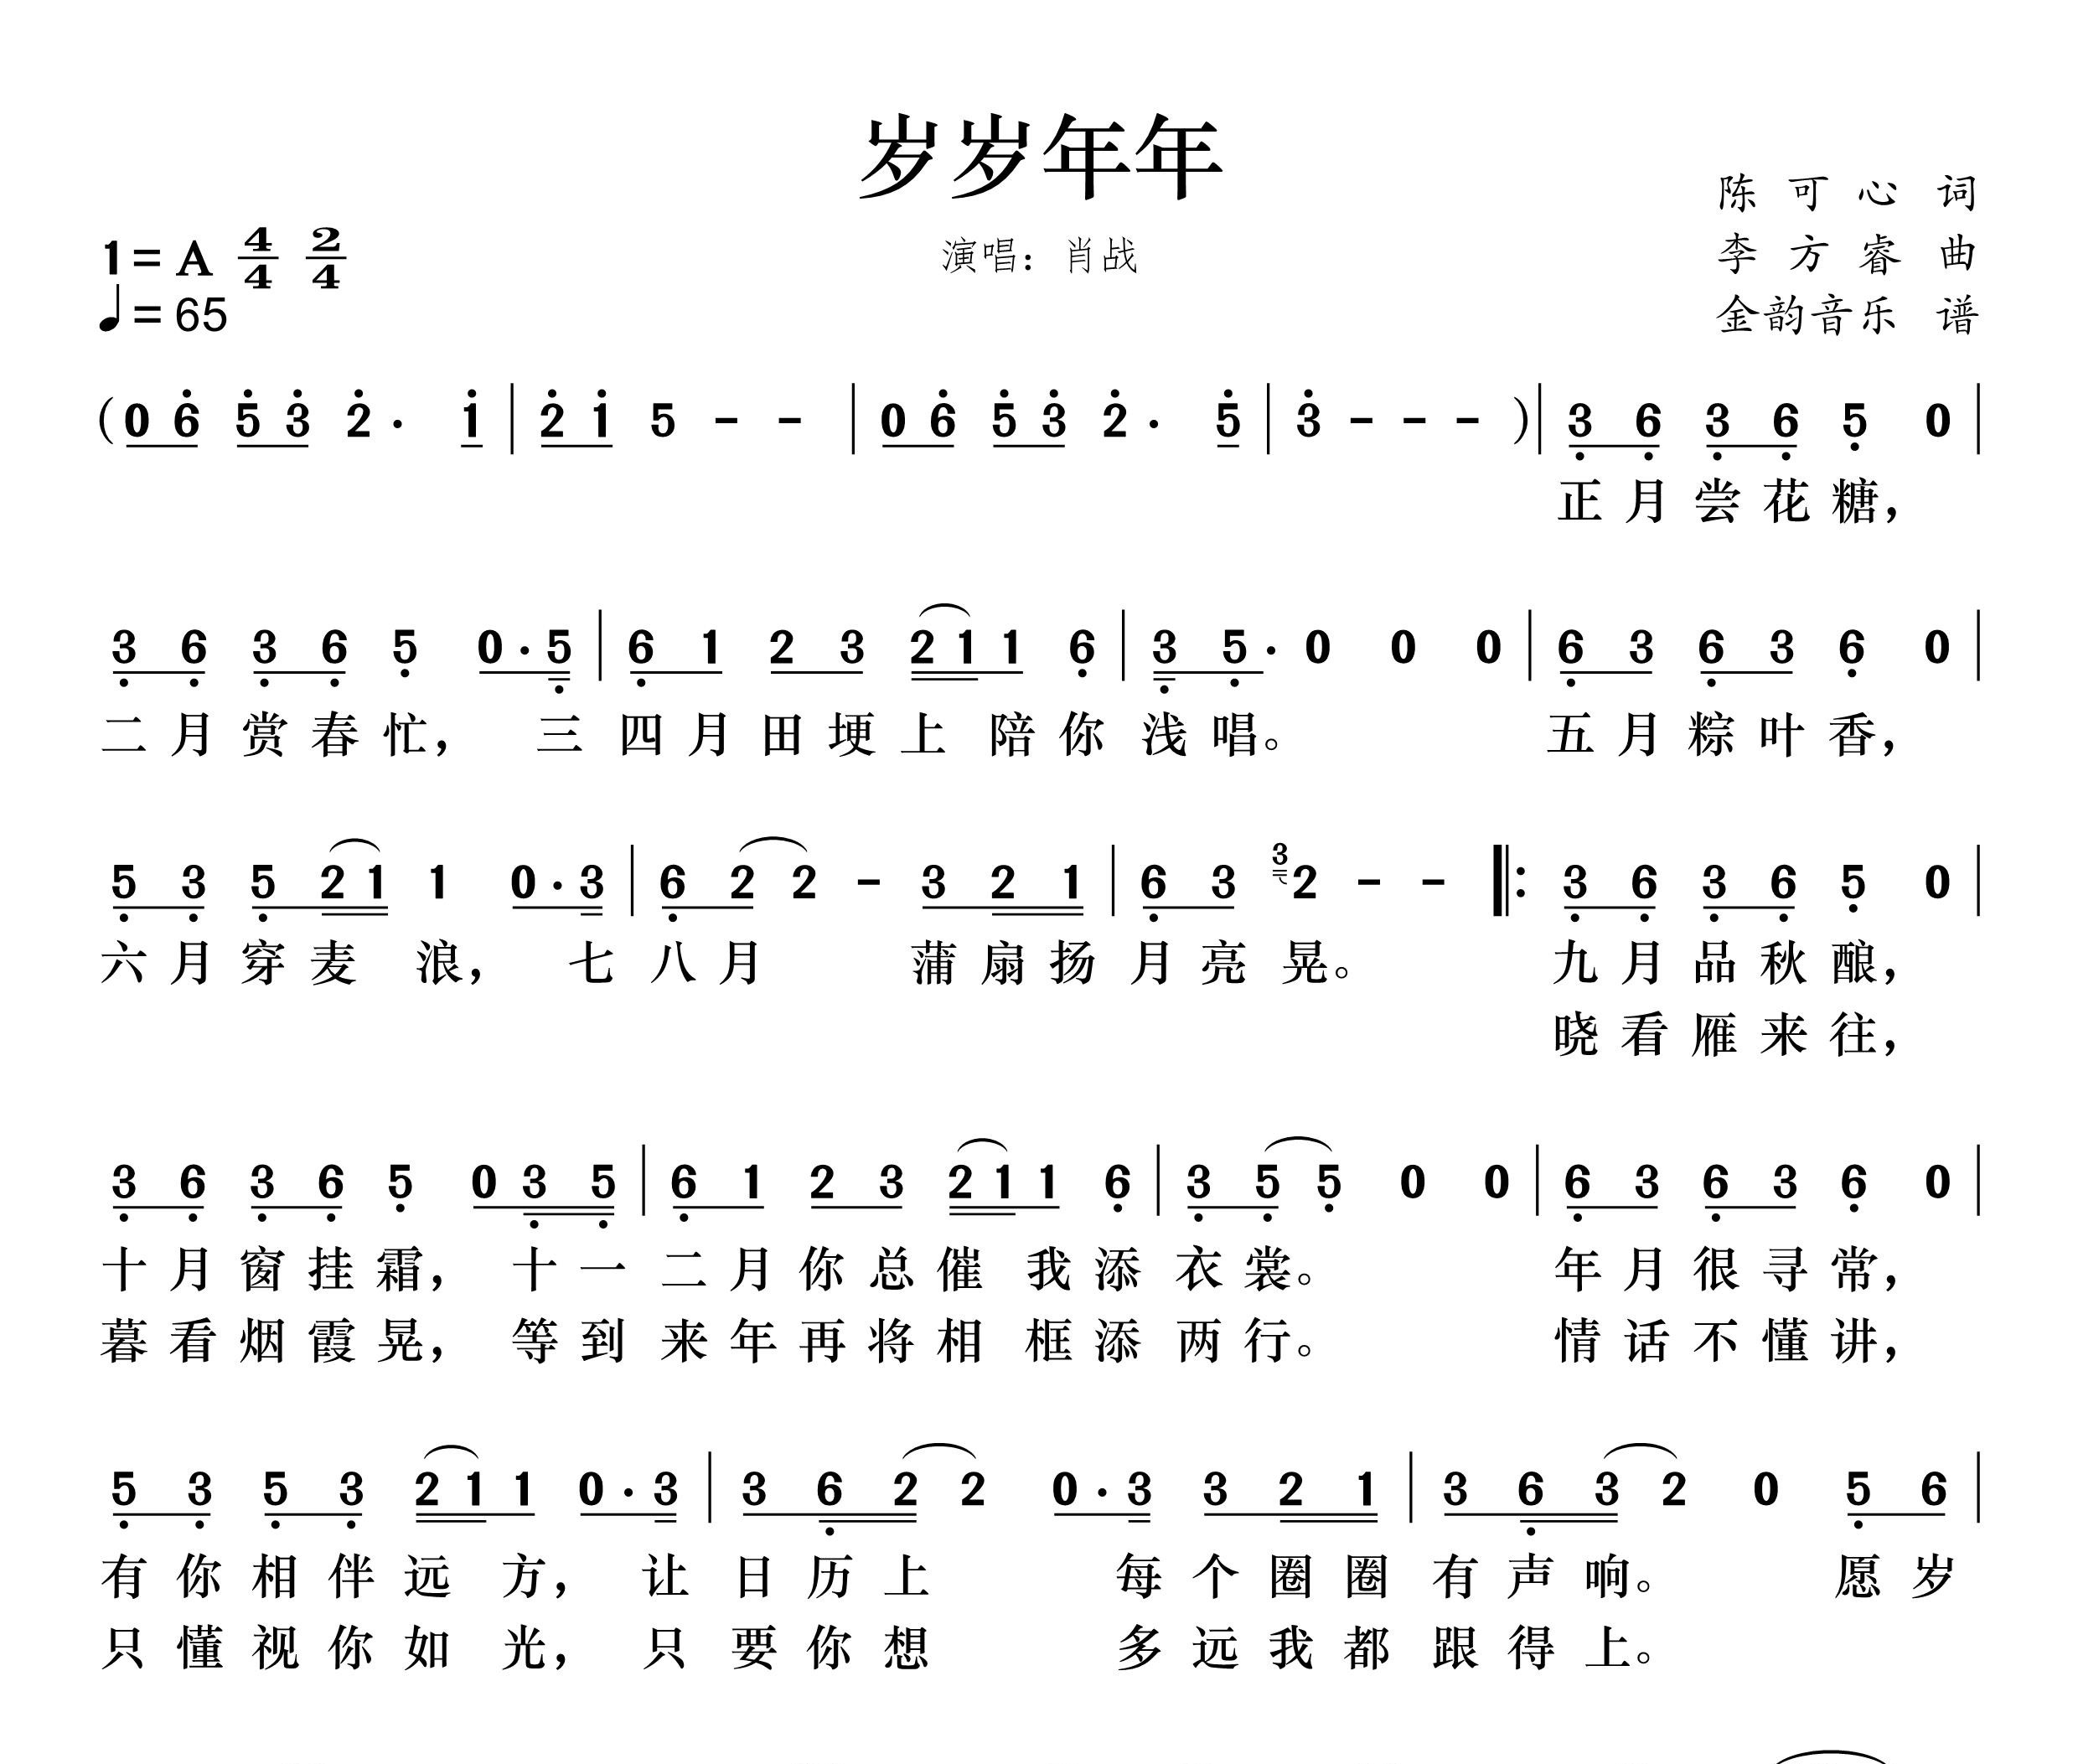 岁岁年年
演唱：肖战
陈可心 词
李方睿 曲
金韵音乐 谱
1=A 4/4 2/4
♩=65
(0 6 5 3 2 · 1 | 2 1 5 – – | 0 6 5 3 2 · 5 | 3 – – – ) | 3 6 3 6 5 0 |
正月尝花糖，
3 6 3 6 5 0 · 5 | 6 1 2 3 2 1 1 6 | 3 5 · 0 0 0 | 6 3 6 3 6 0 |
二月赏春忙， 三四月田埂上 陪你浅唱。 五月粽叶香，
5 3 5 2 1 1 0 · 3 | 6 2 2 – 3 2 1 | 6 3 3 2 – – |: 3 6 3 6 5 0 |
六月穿麦 浪， 七八月 蒲扇扬月亮晃。 九月品秋酿，
晓看雁来往，
3 6 3 6 5 0 3 5 | 6 1 2 3 2 1 1 6 | 3 5 5 0 0 | 6 3 6 3 6 0 |
十月窗挂霜， 十一二月你总催 我添衣裳。 年月很寻常，
暮看烟霞晃， 等到来年再将相 框添两行。 情话不懂讲，
5 3 5 3 2 1 1 0 · 3 | 3 6 2 2 0 · 3 3 2 1 | 3 6 3 2 0 5 6 |
有你相伴远 方， 让日历上 每个圈圈有声响。 愿岁
只懂视你如 光， 只要你想 多远我都跟得上。